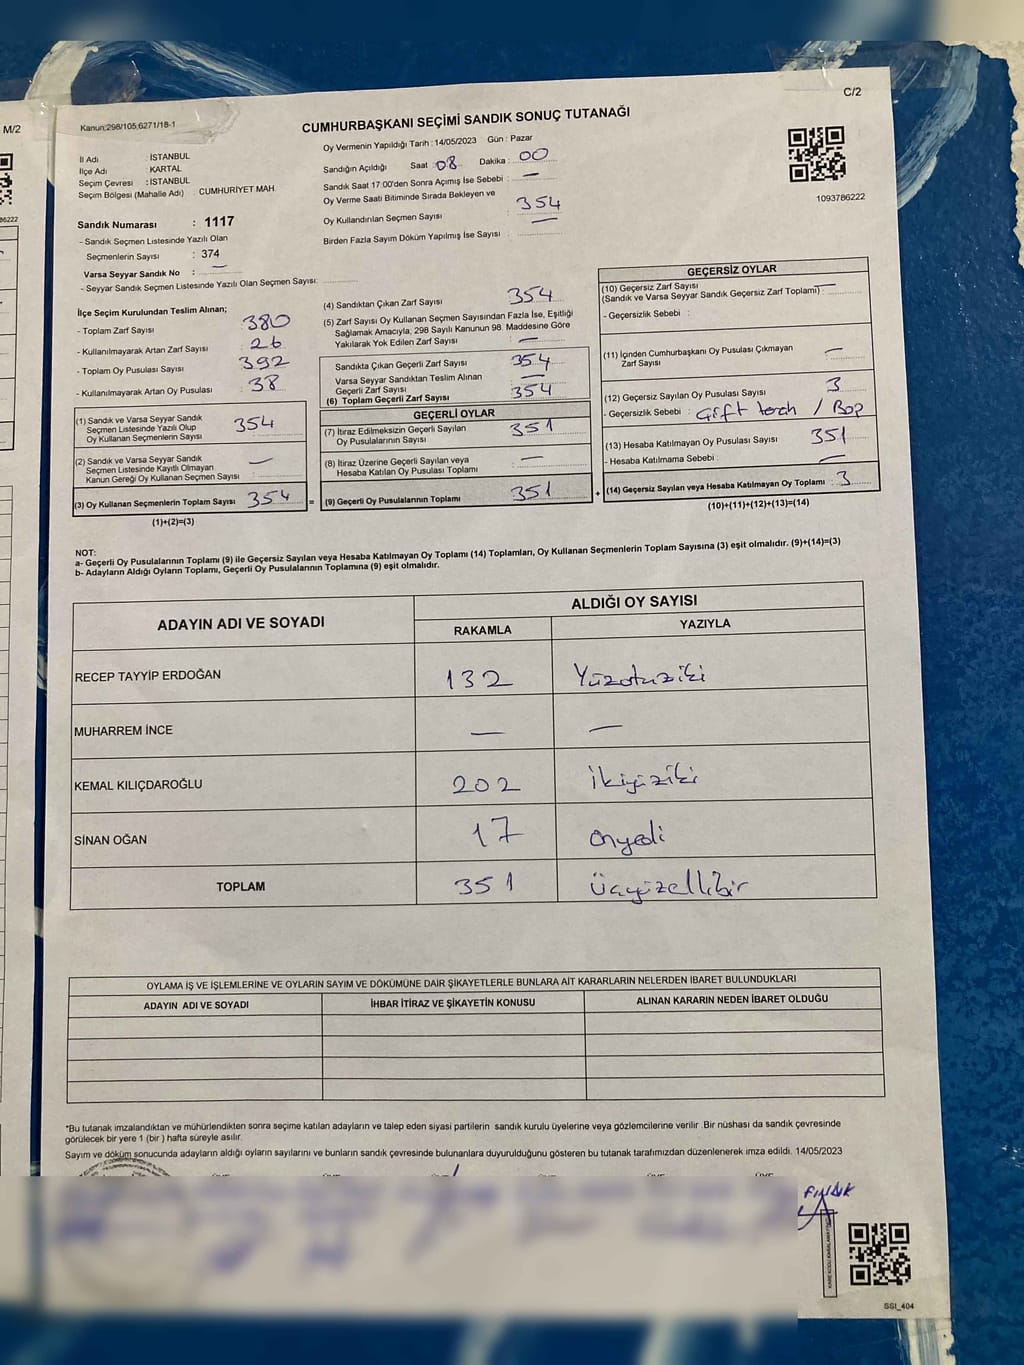 M/2
C/2
Kanun:298/105;6271/18-1
CUMHURBAŞKANI SEÇİMİ SANDIK SONUÇ TUTANAĞI
İl Adı : İSTANBUL
İlçe Adı : KARTAL
Seçim Çevresi : İSTANBUL
Seçim Bölgesi (Mahalle Adı) : CUMHURİYET MAH.
Oy Vermenin Yapıldığı Tarih : 14/05/2023 Gün : Pazar
Sandığın Açıldığı Saat : 08 Dakika : 00
Sandık Saat 17.00'den Sonra Açımış İse Sebebi : —
Oy Verme Saati Bitiminde Sırada Bekleyen ve
Oy Kullandırılan Seçmen Sayısı : 354
Birden Fazla Sayım Döküm Yapılmış İse Sayısı : —
1093786222
86222
Sandık Numarası : 1117
- Sandık Seçmen Listesinde Yazılı Olan
Seçmenlerin Sayısı : 374
Varsa Seyyar Sandık No : —
- Seyyar Sandık Seçmen Listesinde Yazılı Olan Seçmen Sayısı:
İlçe Seçim Kurulundan Teslim Alınan;
- Toplam Zarf Sayısı : 380
- Kullanılmayarak Artan Zarf Sayısı : 26
- Toplam Oy Pusulası Sayısı : 392
- Kullanılmayarak Artan Oy Pusulası : 38
(1) Sandık ve Varsa Seyyar Sandık
Seçmen Listesinde Yazılı Olup
Oy Kullanan Seçmenlerin Sayısı : 354
(2) Sandık ve Varsa Seyyar Sandık
Seçmen Listesinde Kayıtlı Olmayan
Kanun Gereği Oy Kullanan Seçmen Sayısı : —
(3) Oy Kullanan Seçmenlerin Toplam Sayısı : 354 =
(1)+(2)=(3)
(4) Sandıktan Çıkan Zarf Sayısı : 354
(5) Zarf Sayısı Oy Kullanan Seçmen Sayısından Fazla İse, Eşitliği
Sağlamak Amacıyla, 298 Sayılı Kanunun 98. Maddesine Göre
Yakılarak Yok Edilen Zarf Sayısı : —
Sandıkta Çıkan Geçerli Zarf Sayısı : 354
Varsa Seyyar Sandıktan Teslim Alınan
Geçerli Zarf Sayısı : —
(6) Toplam Geçerli Zarf Sayısı : 354
GEÇERLİ OYLAR
(7) İtiraz Edilmeksizin Geçerli Sayılan
Oy Pusulalarının Sayısı : 351
(8) İtiraz Üzerine Geçerli Sayılan veya
Hesaba Katılan Oy Pusulası Toplamı : —
(9) Geçerli Oy Pusulalarının Toplamı : 351 +
GEÇERSİZ OYLAR
(10) Geçersiz Zarf Sayısı
(Sandık ve Varsa Seyyar Sandık Geçersiz Zarf Toplamı) : —
- Geçersizlik Sebebi :
(11) İçinden Cumhurbaşkanı Oy Pusulası Çıkmayan
Zarf Sayısı : —
(12) Geçersiz Sayılan Oy Pusulası Sayısı : 3
- Geçersizlik Sebebi : Çift tercih / Boş
(13) Hesaba Katılmayan Oy Pusulası Sayısı : 351
- Hesaba Katılmama Sebebi : —
(14) Geçersiz Sayılan veya Hesaba Katılmayan Oy Toplamı : 3
(10)+(11)+(12)+(13)=(14)
NOT:
a- Geçerli Oy Pusulalarının Toplamı (9) ile Geçersiz Sayılan veya Hesaba Katılmayan Oy Toplamı (14) Toplamları, Oy Kullanan Seçmenlerin Toplam Sayısına (3) eşit olmalıdır. (9)+(14)=(3)
b- Adayların Aldığı Oyların Toplamı, Geçerli Oy Pusulalarının Toplamına (9) eşit olmalıdır.
ADAYIN ADI VE SOYADI ALDIĞI OY SAYISI
RAKAMLA YAZIYLA
RECEP TAYYİP ERDOĞAN 132 Yüzotuziki
MUHARREM İNCE — —
KEMAL KILIÇDAROĞLU 202 İkiyüziki
SİNAN OĞAN 17 Onyedi
TOPLAM 351 Üçyüzellibir
OYLAMA İŞ VE İŞLEMLERİNE VE OYLARIN SAYIM VE DÖKÜMÜNE DAİR ŞİKAYETLERLE BUNLARA AİT KARARLARIN NELERDEN İBARET BULUNDUKLARI
ADAYIN ADI VE SOYADI İHBAR İTİRAZ VE ŞİKAYETİN KONUSU ALINAN KARARIN NEDEN İBARET OLDUĞU
*Bu tutanak imzalandıktan ve mühürlendikten sonra seçime katılan adayların ve talep eden siyasi partilerin sandık kurulu üyelerine veya gözlemcilerine verilir .Bir nüshası da sandık çevresinde
görülecek bir yere 1 (bir ) hafta süreyle asılır.
Sayım ve döküm sonucunda adayların aldığı oyların sayılarını ve bunların sandık çevresinde bulunanlara duyurulduğunu gösteren bu tutanak tarafımızdan düzenlenerek imza edildi. 14/05/2023
FINDIK
SSI_404